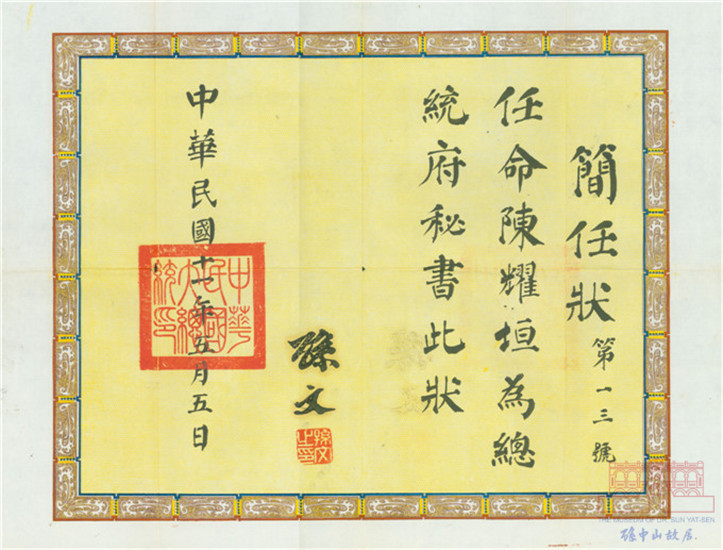 簡任狀 第一三號
任命陳耀垣為總
統府秘書此狀
孫文
孫文之印
中華民國十一年五月五日
中華民國大總統印
THE MUSEUM OF DR. SUN YAT-SEN
孫中山故居